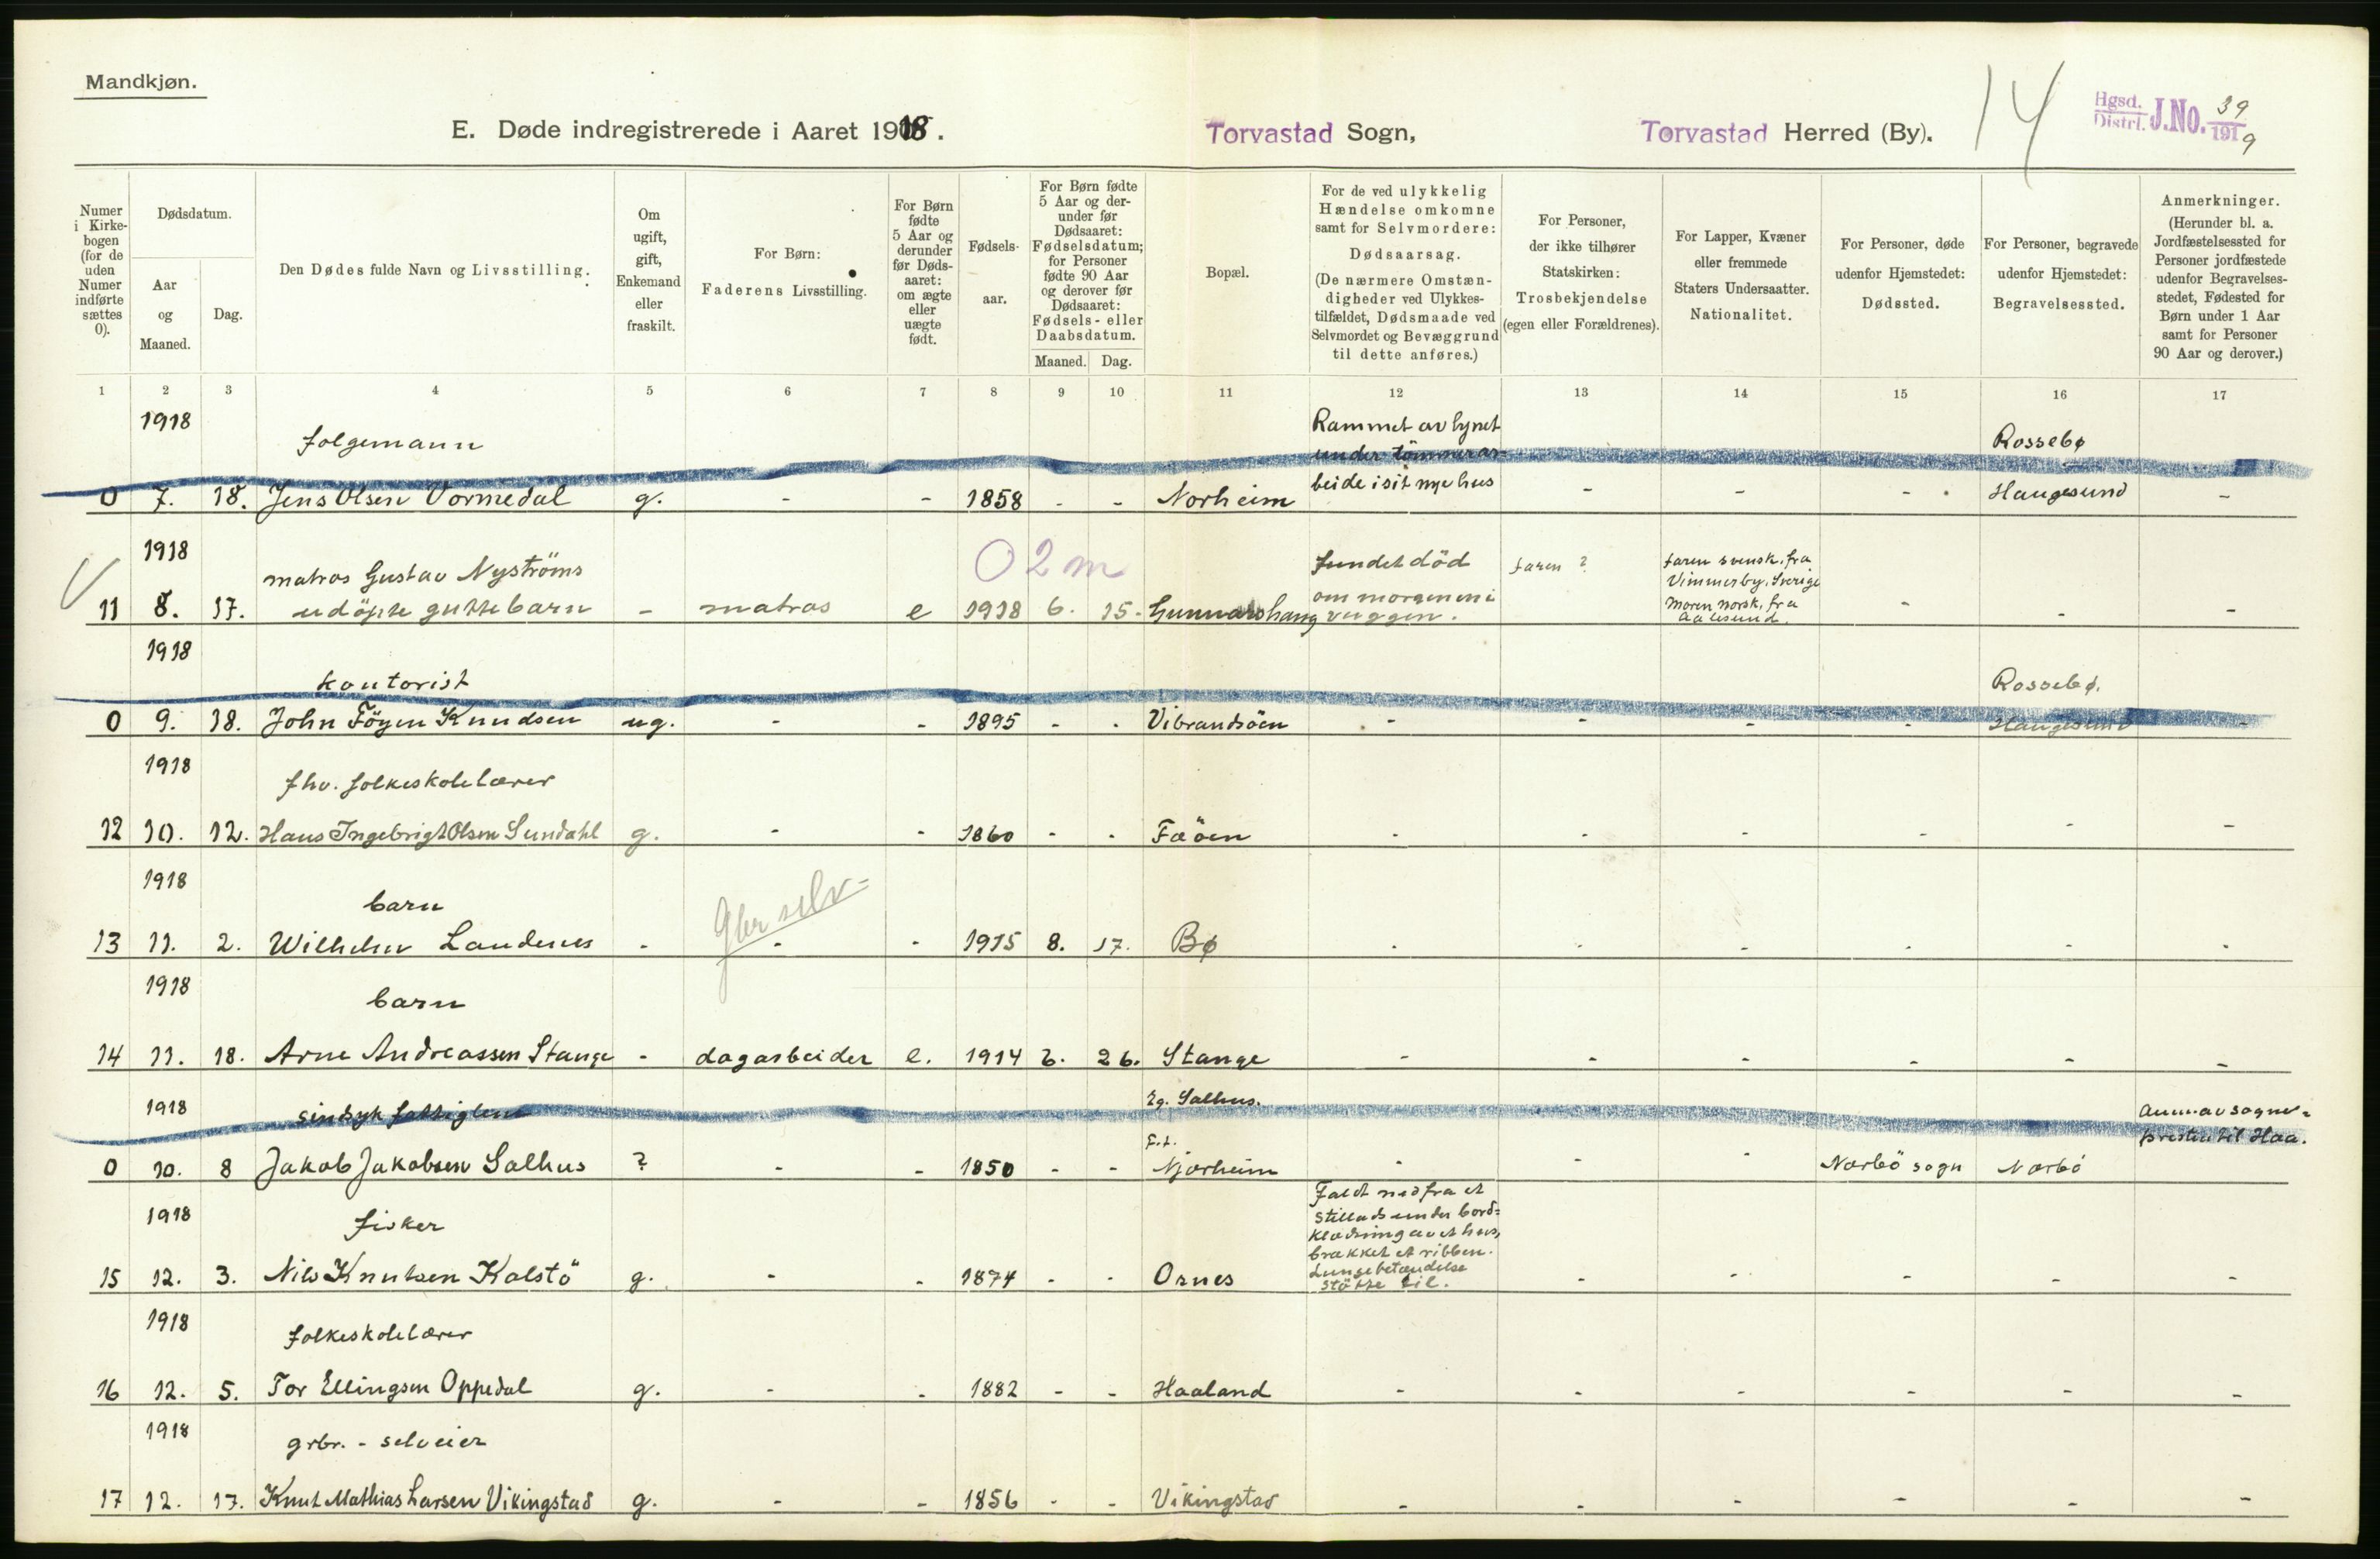 Mandkjøn.
E. Døde indregistrerede i Aaret 1918.
Torvastad Sogn,
Torvastad Herred (By).
14
Hgsd. Distrl. J.No. 39 1919
Numer i Kirke-bogen (for de uden Numer indførte sættes 0).
Dødsdatum.
Aar og Maaned.
Dag.
Den Dødes fulde Navn og Livsstilling.
Om ugift, gift, Enkemand eller fraskilt.
For Børn: Faderens Livsstilling.
For Børn fødte 5 Aar og derunder før Døds-aaret: om ægte eller uægte født.
Fødsels-aar.
For Børn fødte 5 Aar og der-under før Dødsaaret: Fødselsdatum; for Personer fødte 90 Aar og derover før Dødsaaret: Fødsels- eller Daabsdatum.
Maaned. Dag.
Bopæl.
For de ved ulykkelig Hændelse omkomne samt for Selvmordere: Dødsaarsag. (De nærmere Omstæn-digheder ved Ulykkes-tilfældet, Dødsmaade ved Selvmordet og Bevæggrund til dette anføres.)
For Personer, der ikke tilhører Statskirken: Trosbekjendelse (egen eller Forældrenes).
For Lapper, Kvæner eller fremmede Staters Undersaatter. Nationalitet.
For Personer, døde udenfor Hjemstedet: Dødssted.
For Personer, begravede udenfor Hjemstedet: Begravelsessted.
Anmerkninger. (Herunder bl. a. Jordfæstelsessted for Personer jordfæstede udenfor Begravelses-stedet, Fødested for Børn under 1 Aar samt for Personer 90 Aar og derover.)
1 2 3 4 5 6 7 8 9 10 11 12 13 14 15 16 17
1918 folgemann Rammet av lynet Rossebø
under tömmerar-
0 7. 18. Jens Olsen Vormedal g. - - 1858 - - Norheim beide i sit nye hus - - - Haugesund -
1918 matros Gustav Nyströms 0 2 m fundet död faren ? faren svensk, fra
Vimmerby, Sverige
11 8. 17. udöpte guttebarn - matros e 1918 6. 15. Gunnarshaug om morgenen i vuggen. moren norsk, fra Aalesund. - - -
1918 kontorist Rossebø.
0 9. 18. John Föyen Knudsen ug. - - 1895 - - Vibrandsöen - - - - Haugesund -
1918 fhv. folkeskolelærer
12 10. 12. Hans Ingebrigt Olsen Sundahl g. - - 1860 - - Fæöen - - - - - -
1918 barn Gbr selv=
13 11. 2. Wilhelm Landenes - - - 1915 8. 17. Bø - - - - - -
1918 barn
14 11. 18. Arne Andreassen Stange - dagarbeider e. 1914 2. 26. Stange - - - - - -
1918 sindsyk fattiglem Eg. Salhus. anm. av sogne=
F.t. presten til Haa.
0 10. 8 Jakob Jakobsen Salhus ? - - 1850 - - Njærheim - - - Nærbö sogn Nærbö
1918 fisker Faldt ned fra et
stillads under bord=
klædning av et hus,
brækket et ribben.
Lungebetændelse
15 12. 3. Nils Knutsen Kalstö g. - - 1874 - - Osnes stötte til. - - - - -
1918 folkeskolelærer
16 12. 5. Tor Ellingsen Oppedal g. - - 1882 - - Haaland - - - - - -
1918 grbr. - selveier
17 12. 17. Knut Mathias Larsen Vikingstad g. - - 1856 - - Vikingstad - - - - - -